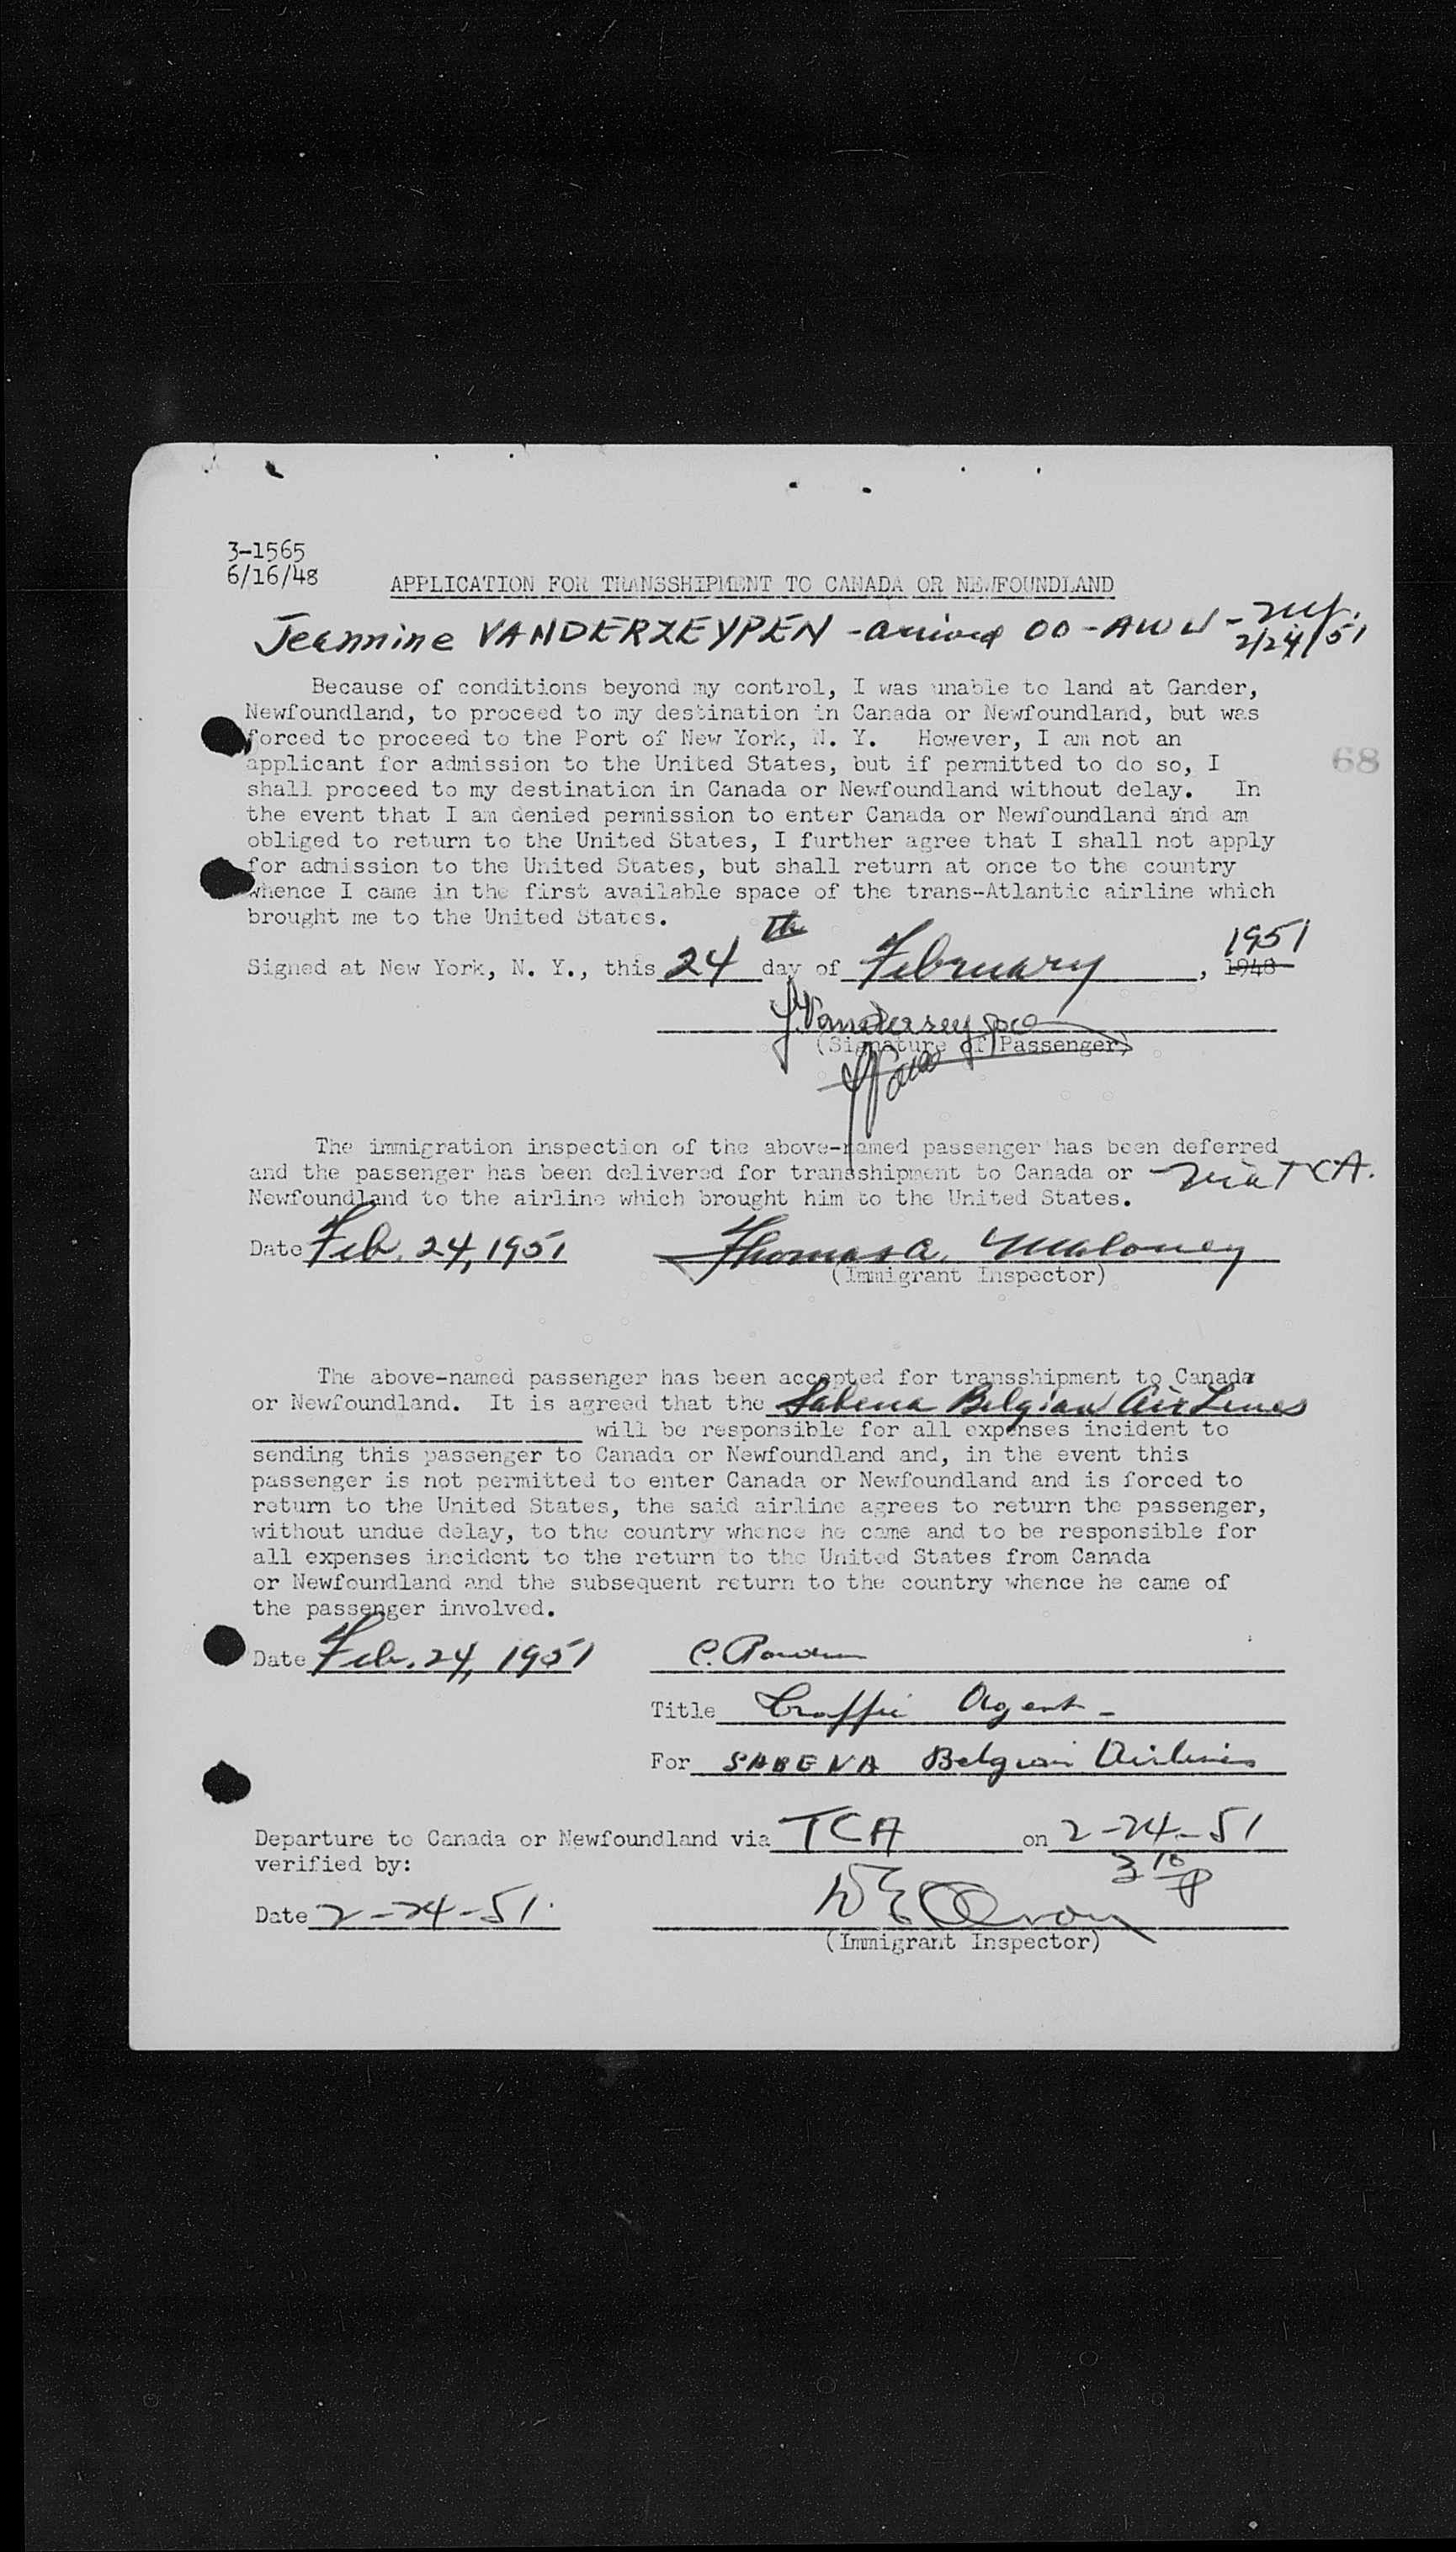 3-1565
6/16/48
APPLICATION FOR TRANSSHIPMENT TO CANADA OR NEWFOUNDLAND
Jeannine VANDERZEYPEN - arrived OO-AWW -
2/24/51
Because of conditions beyond my control, I was unable to land at Gander,
Newfoundland, to proceed to my destination in Canada or Newfoundland, but was
forced to proceed to the Port of New York, N. Y. However, I am not an
applicant for admission to the United States, but if permitted to do so, I
68
shall proceed to my destination in Canada or Newfoundland without delay. In
the event that I am denied permission to enter Canada or Newfoundland and am
obliged to return to the United States, I further agree that I shall not apply
for admission to the United States, but shall return at once to the country
whence I came in the first available space of the trans-Atlantic airline which
brought me to the United States.
Signed at New York, N. Y., this 24th day of February, 1948 1951
J. Vanderzeypen
(Signature of Passenger)
The immigration inspection of the above-named passenger has been deferred
and the passenger has been delivered for transshipment to Canada or - via TCA.
Newfoundland to the airline which brought him to the United States.
Date Feb. 24, 1951 Thomas A. Maloney
(Immigrant Inspector)
The above-named passenger has been accepted for transshipment to Canada
or Newfoundland. It is agreed that the Sabena Belgian Air Lines
will be responsible for all expenses incident to
sending this passenger to Canada or Newfoundland and, in the event this
passenger is not permitted to enter Canada or Newfoundland and is forced to
return to the United States, the said airline agrees to return the passenger,
without undue delay, to the country whence he came and to be responsible for
all expenses incident to the return to the United States from Canada
or Newfoundland and the subsequent return to the country whence he came of
the passenger involved.
Date Feb. 24, 1951 C.
Title Traffic Agent -
For SABENA Belgian Airlines
Departure to Canada or Newfoundland via TCA on 2-24-51
verified by: 3 10 P
Date 2-24-51.
(Immigrant Inspector)